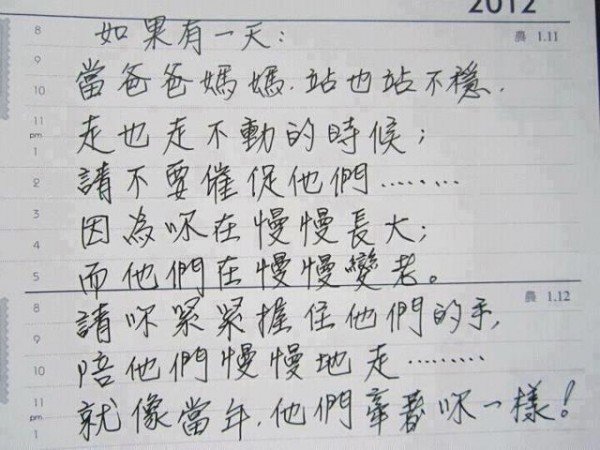 2012
8 如果有一天： 農 1.11
9
10 當爸爸媽媽.站也站不穩.
11
pm 走也走不動的時候；
1
2 請不要催促他們………
3
4 因為你在慢慢長大;
5 而他們在慢慢變老。
8 請你緊緊握住他們的手, 農 1.12
9
10 陪他們慢慢地走………
11
pm 就像當年.他們牽著你一樣!
1